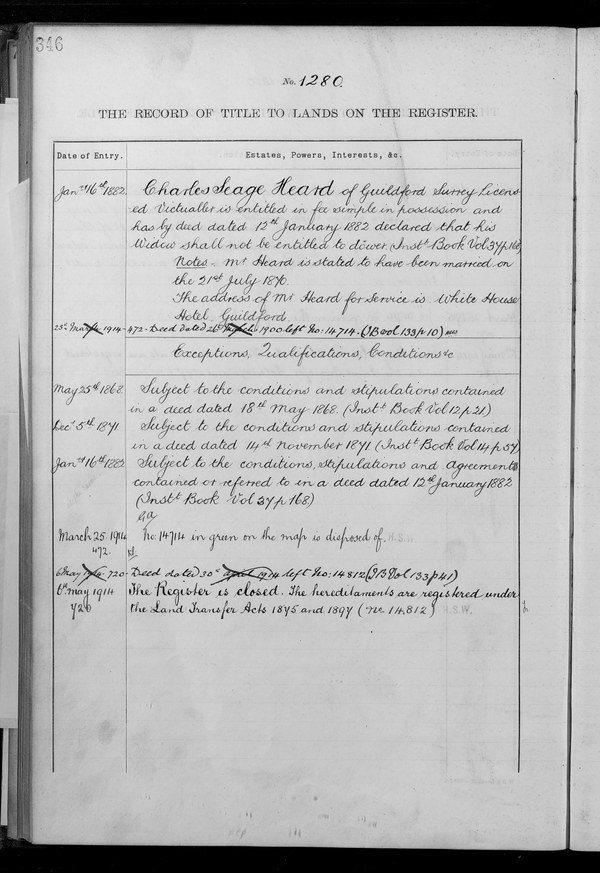 346
No. 1280.
THE RECORD OF TITLE TO LANDS ON THE REGISTER.
Date of Entry. Estates, Powers, Interests, &c.
Jan.ry 16th 1882. Charles Seage Heard of Guildford Surrey Licens
-ed Victualler is entitled in fee simple in possession and
has by deed dated 12th January 1882 declared that his
Widow shall not be entitled to dower. (Instt Book Vol 37 p 168)
Notes. Mr Heard is stated to have been married on
the 21st July 1870.
The address of Mr Heard for service is White House
Hotel, Guildford.
25th March 1914 - 472 - Deed dated 1900 left No: 14714. (IB vol 133 p 10)
Exceptions, Qualifications, Conditions &c
May 25th 1868. Subject to the conditions and stipulations contained
in a deed dated 18th May 1868. (Instt Book Vol 12 p 21)
Decr 5th 1871 Subject to the conditions and stipulations contained
in a deed dated 14th November 1871. (Instt Book Vol 14 p 54)
Jan.ry 16th 1882 Subject to the conditions, stipulations and agreements
contained or referred to in a deed dated 12th January 1882
(Instt Book Vol 37 p 168)
March 25 1914 No. 14714 in green on the map is disposed of.
472.
6 May 1914 - 720 - Deed dated 30th April 1914 left No: 14812 (IB Vol 133 p 41)
6th May 1914 The Register is closed. The hereditaments are registered under
720 the Land Transfer Acts 1875 and 1897 (No 14,812)